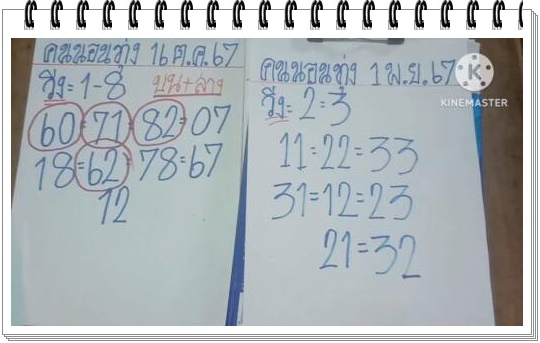 คนนอนทุ่ง 16 ต.ค.67
วิ่ง=1-8 บน+ล่าง
60=71=82=07
18=62=78=67
12
คนนอนทุ่ง 1 พ.ย.67
วิ่ง=2=3
11=22=33
31=12=23
21=32
KINEMASTER